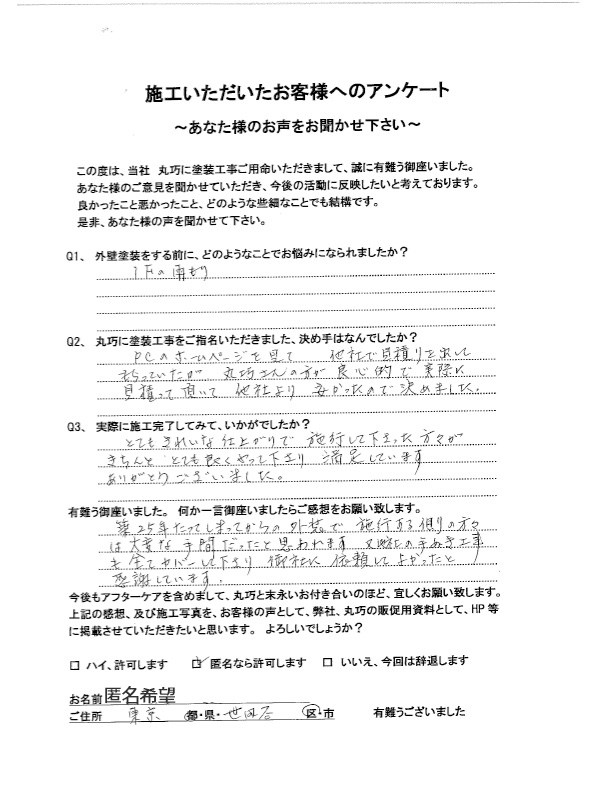 施工いただいたお客様へのアンケート
～あなた様のお声をお聞かせ下さい～
この度は、当社 丸巧に塗装工事ご用命いただきまして、誠に有難う御座いました。
あなた様のご意見を聞かせていただき、今後の活動に反映したいと考えております。
良かったこと悪かったこと、どのような些細なことでも結構です。
是非、あなた様の声を聞かせて下さい。
Q1、 外壁塗装をする前に、どのようなことでお悩みになられましたか？
1Fの雨もり
Q2、 丸巧に塗装工事をご指名いただきました、決め手はなんでしたか？
PCのホームページを見て 他社で見積りを出して
もらっていたが 丸巧さんの方が 良心的で 実際に
見積って頂いて 他社より 安かったので 決めました。
Q3、 実際に施工完了してみて、いかがでしたか？
とてもきれいな仕上がりで 施行して下さった方々が
きちんと とても良くやって下さり 満足しています
ありがとうございました。
有難う御座いました。 何か一言御座いましたらご感想をお願い致します。
築25年たってしまってからの外装で 施行する側の方々
は大変な手間だったと思われます 又 他社の手ぬき工事
も全てカバーして下さり 御社に依頼してよかったと
感謝しています。
今後もアフターケアを含めまして、丸巧と末永いお付き合いのほど、宜しくお願い致します。
上記の感想、及び施工写真を、お客様の声として、弊社、丸巧の販促用資料として、HP 等
に掲載させていただきたいと思います。 よろしいでしょうか？
□ ハイ、許可します ☑ 匿名なら許可します □ いいえ、今回は辞退します
お名前 匿名希望
ご住所 東京 都・県・世田谷 区・市 有難うございました